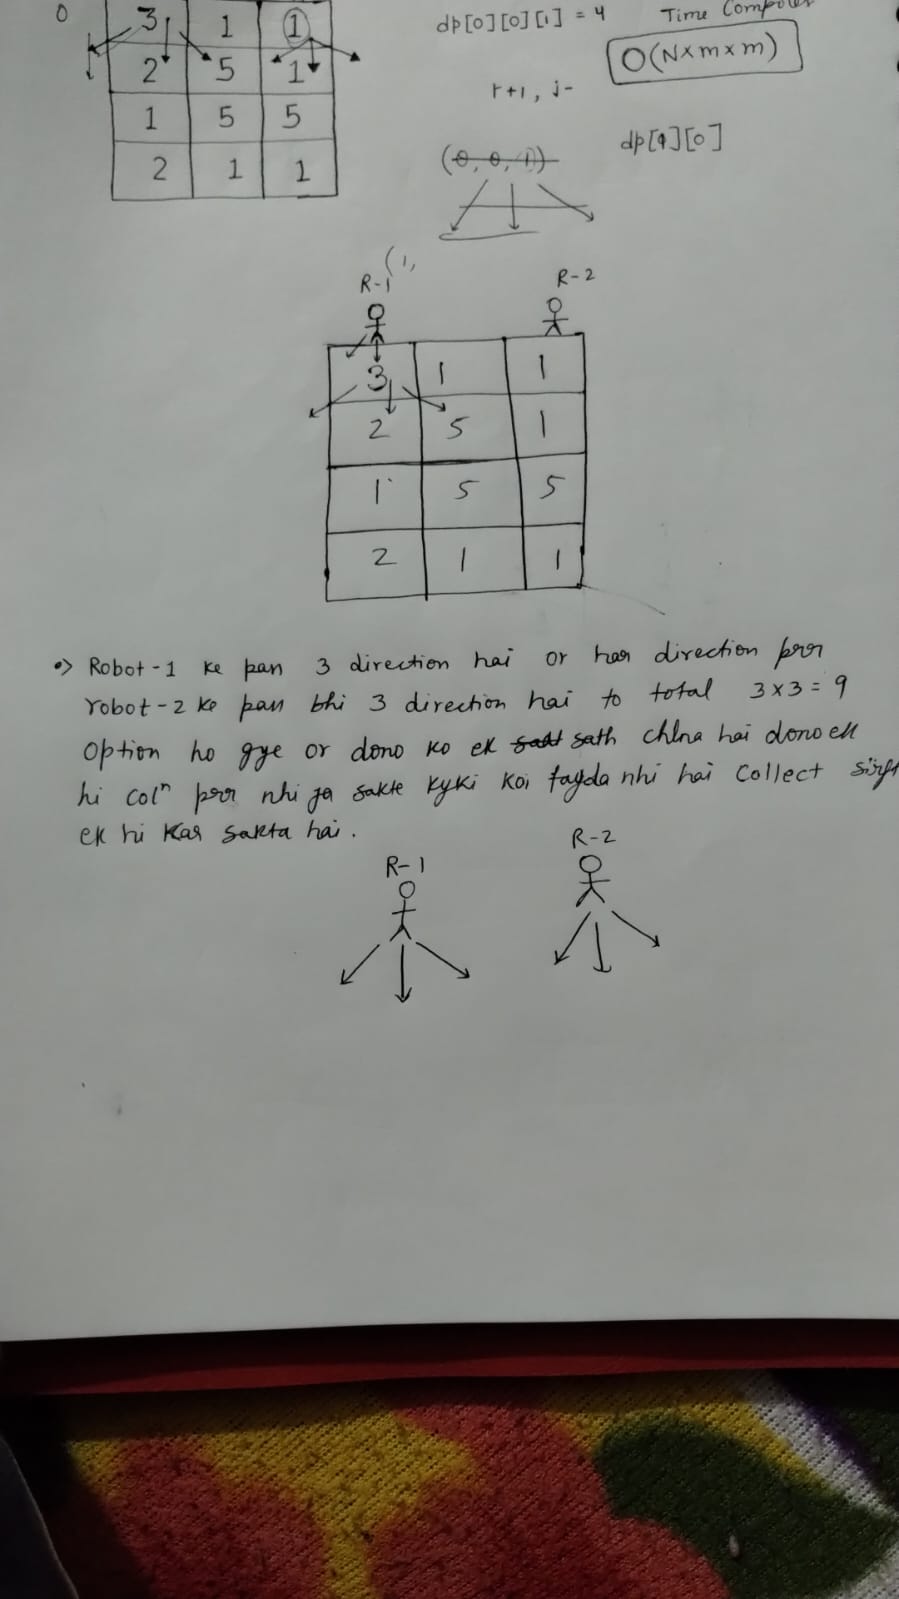 0
3 1 1
2 5 1
1 5 5
2 1 1
dp[0][0][1] = 4
Time
O(N×m×m)
r+1, j-
(0, 0, 1)
dp[1][0]
(1,
R-1
R-2
3 1 1
2 5 1
1 5 5
2 1 1
•> Robot-1 ke pas 3 direction hai or har direction prr
robot-2 ke pas bhi 3 direction hai to total 3×3=9
Option ho gye or dono ko ek sath chlna hai dono ek
hi colⁿ prr nhi ja sakte kyki koi fayda nhi hai Collect sirf
ek hi Kar Sakta hai.
R-1
R-2